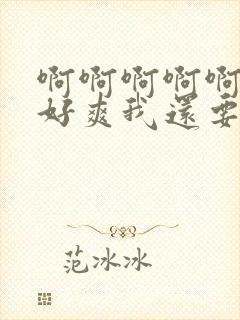 啊啊啊啊啊
好爽我还要
范冰冰